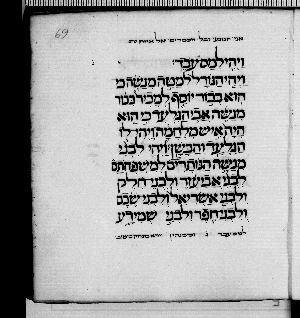 69
ויהי למס עבד
ויהי הגורל למטה מנשה כי
הוא בכור יוסף למכיר בכור
מנשה אבי הגלעד כי הוא
היה איש מלחמה ויהי לו
הגלעד והבשן ויהי לבני
מנשה הנותרים למשפחתם
לבני אביעזר ולבני חלק
ולבני אשריאל ולבני שכם
ולבני חפר ולבני שמידע